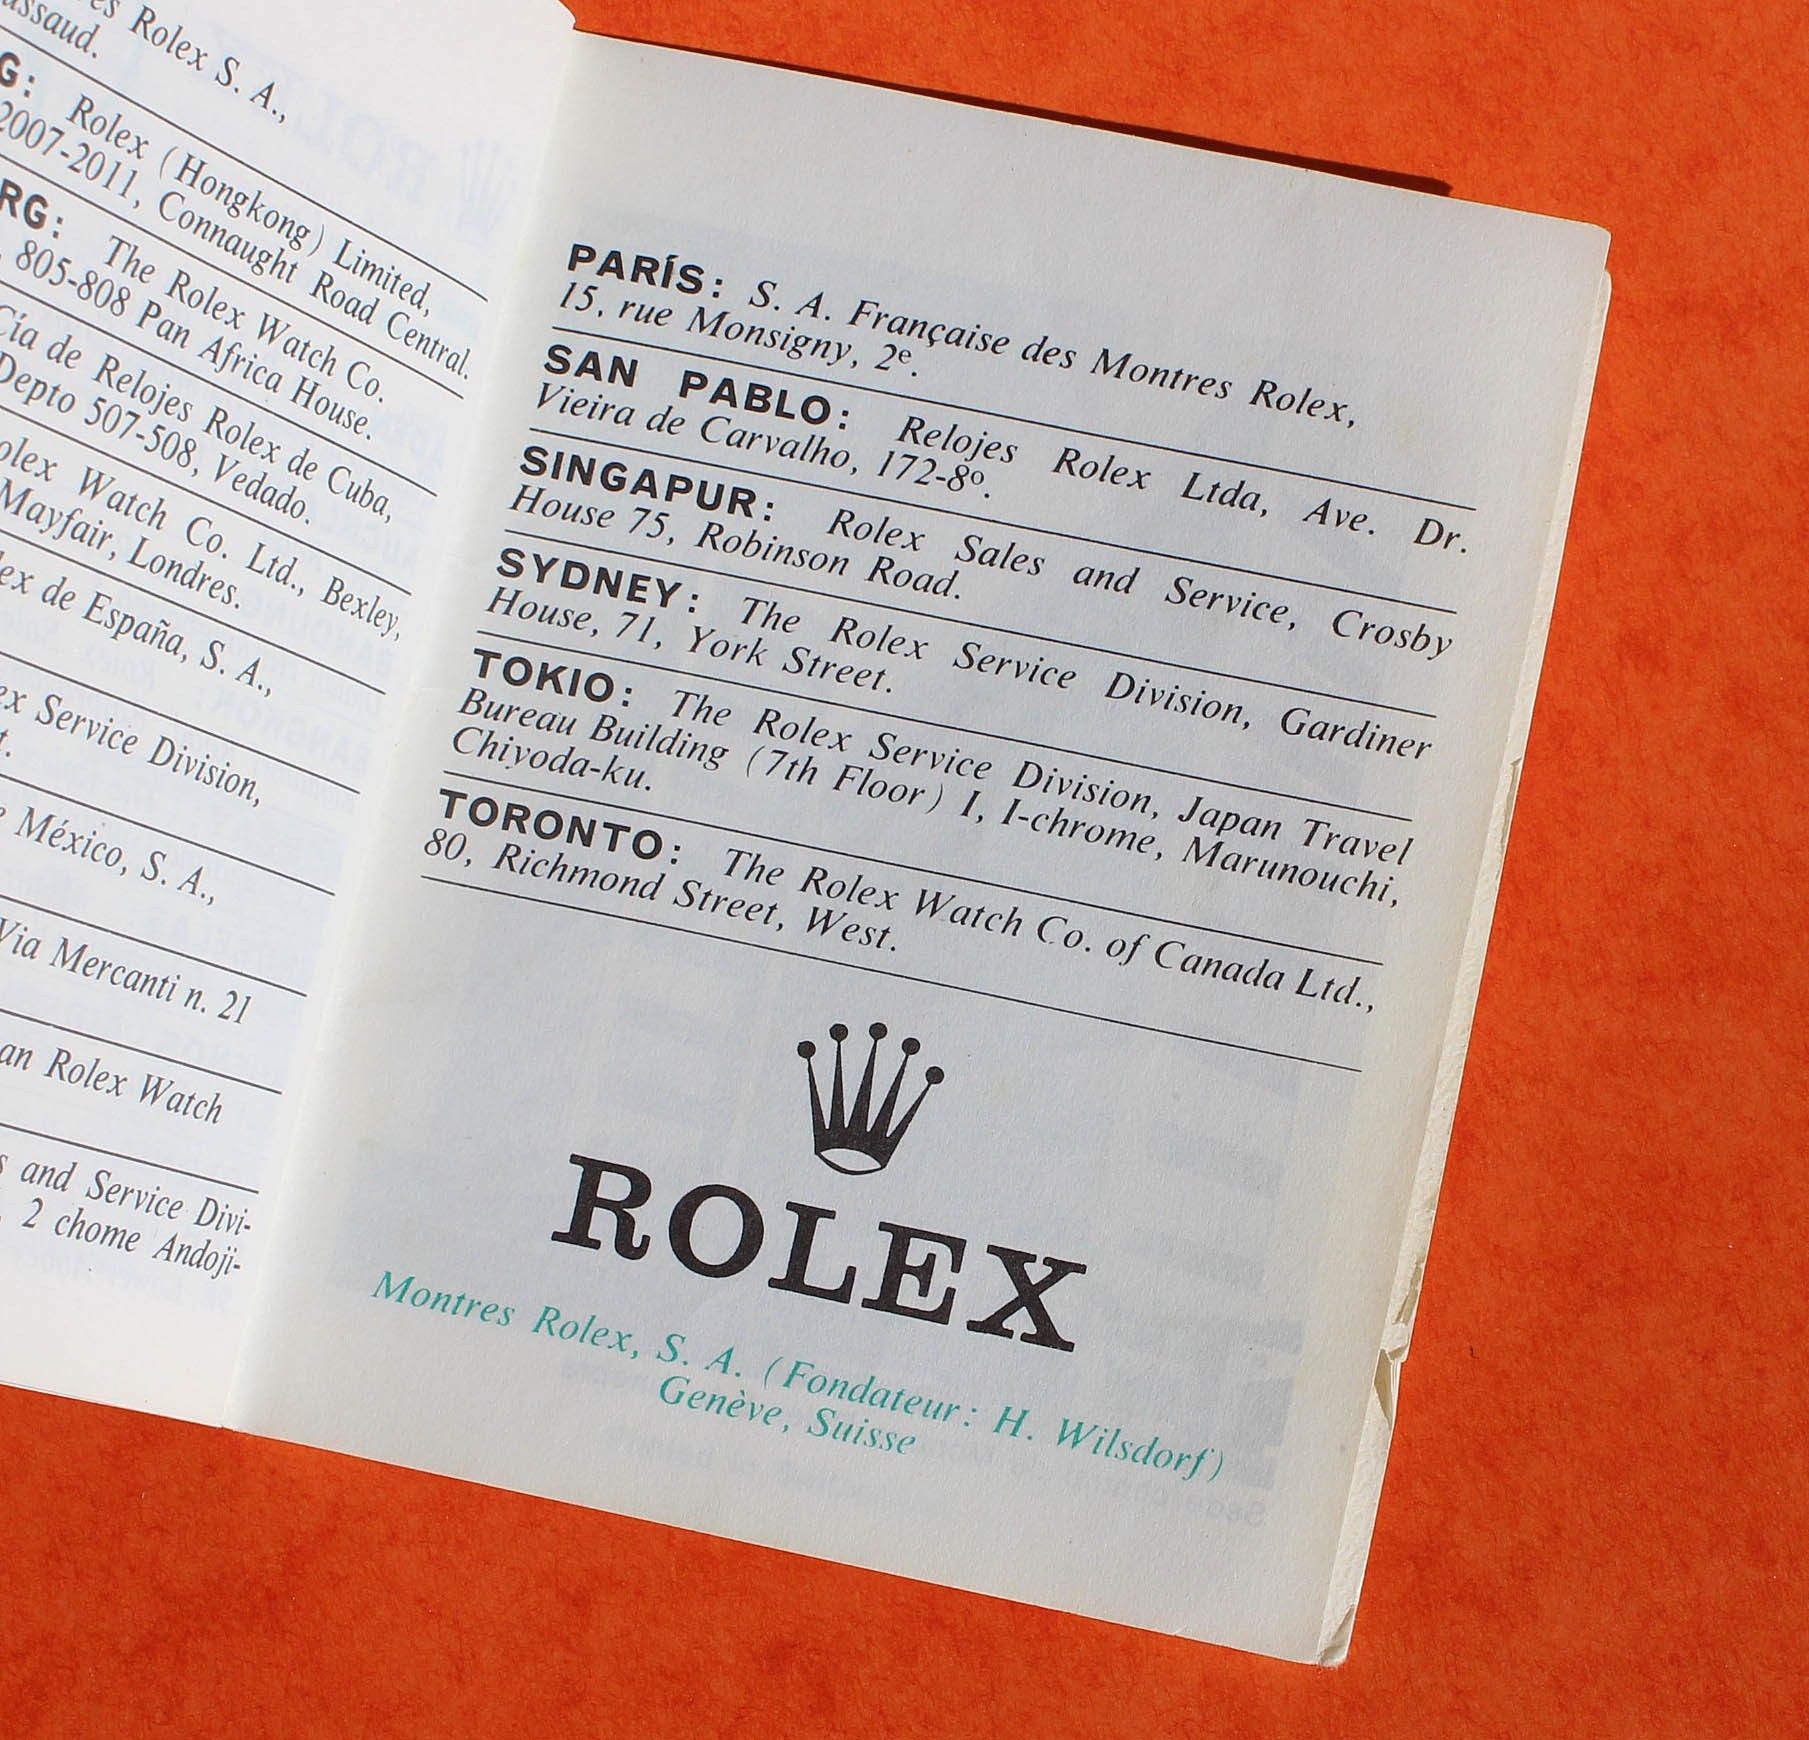 es Rolex S. A.,
ssaud.
G: Rolex (Hongkong) Limited,
2007-2011, Connaught Road Central.
RG: The Rolex Watch Co.
805-808 Pan Africa House.
Cía de Relojes Rolex de Cuba,
Depto 507-508, Vedado.
olex Watch Co. Ltd., Bexley,
Mayfair, Londres.
lex de España, S. A.,
ex Service Division,
t.
e México, S. A.,
Via Mercanti n. 21
an Rolex Watch
s and Service Divi-
2 chome Andoji-
PARÍS: S. A. Française des Montres Rolex,
15, rue Monsigny, 2e.
SAN PABLO: Relojes Rolex Ltda, Ave. Dr.
Vieira de Carvalho, 172-8º.
SINGAPUR: Rolex Sales and Service, Crosby
House 75, Robinson Road.
SYDNEY: The Rolex Service Division, Gardiner
House, 71, York Street.
TOKIO: The Rolex Service Division, Japan Travel
Bureau Building (7th Floor) I, I-chrome, Marunouchi,
Chiyoda-ku.
TORONTO: The Rolex Watch Co. of Canada Ltd.,
80, Richmond Street, West.
ROLEX
Montres Rolex, S. A. (Fondateur: H. Wilsdorf)
Genève, Suisse